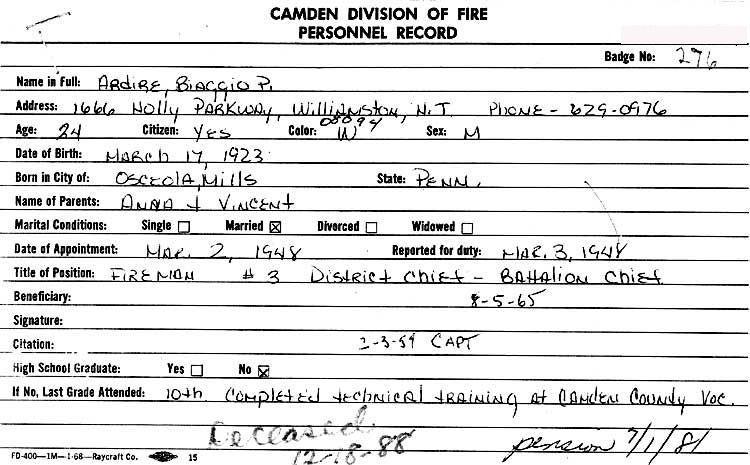 CAMDEN DIVISION OF FIRE
PERSONNEL RECORD
Badge No: 276
Name in Full: Ardire, Biaggio P.
Address: 1666 Holly Parkway, Williamston, N.J. Phone - 629-0976
08094
Age: 24 Citizen: Yes Color: W Sex: M
Date of Birth: March 17, 1923
Born in City of: Osceola, Mills State: Penn.
Name of Parents: Anna + Vincent
Marital Conditions: Single ☐ Married ☒ Divorced ☐ Widowed ☐
Date of Appointment: Mar. 2, 1948 Reported for duty: Mar. 3, 1948
Title of Position: Fireman #3 District Chief - Battalion Chief
Beneficiary: 8-5-65
Signature:
Citation: 2-3-59 Capt
High School Graduate: Yes ☐ No ☒
If No, Last Grade Attended: 10th Completed technical training at Camden County Voc.
Deceased 12-18-88
pension 7/1/81
FD-400—1M—1-68—Raycraft Co. 15